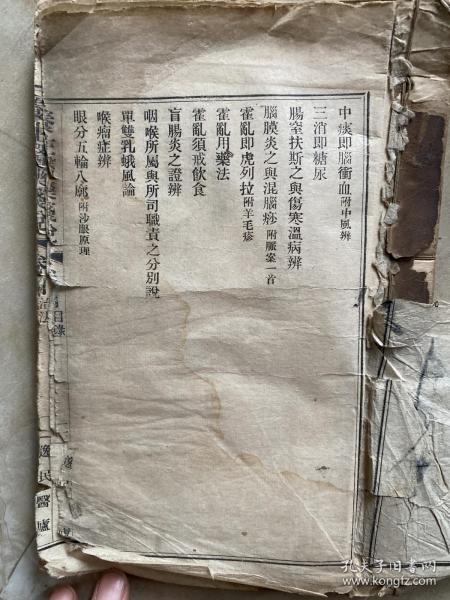 中痰即腦衝血附中風辨
三消即糖尿
腸窒扶斯之與傷寒溫病辨
腦膜炎之與混腦痧附脈案一首
霍亂即虎列拉附羊毛疹
霍亂用藥法
霍亂須戒飲食
盲腸炎之證辨
咽喉所屬與所司職責之分別說
單雙乳蛾風論
喉瘤症辨
眼分五輪八廓附沙眼原理
目錄
逸民醫廬
孔夫子旧书网
www.kongfz.com